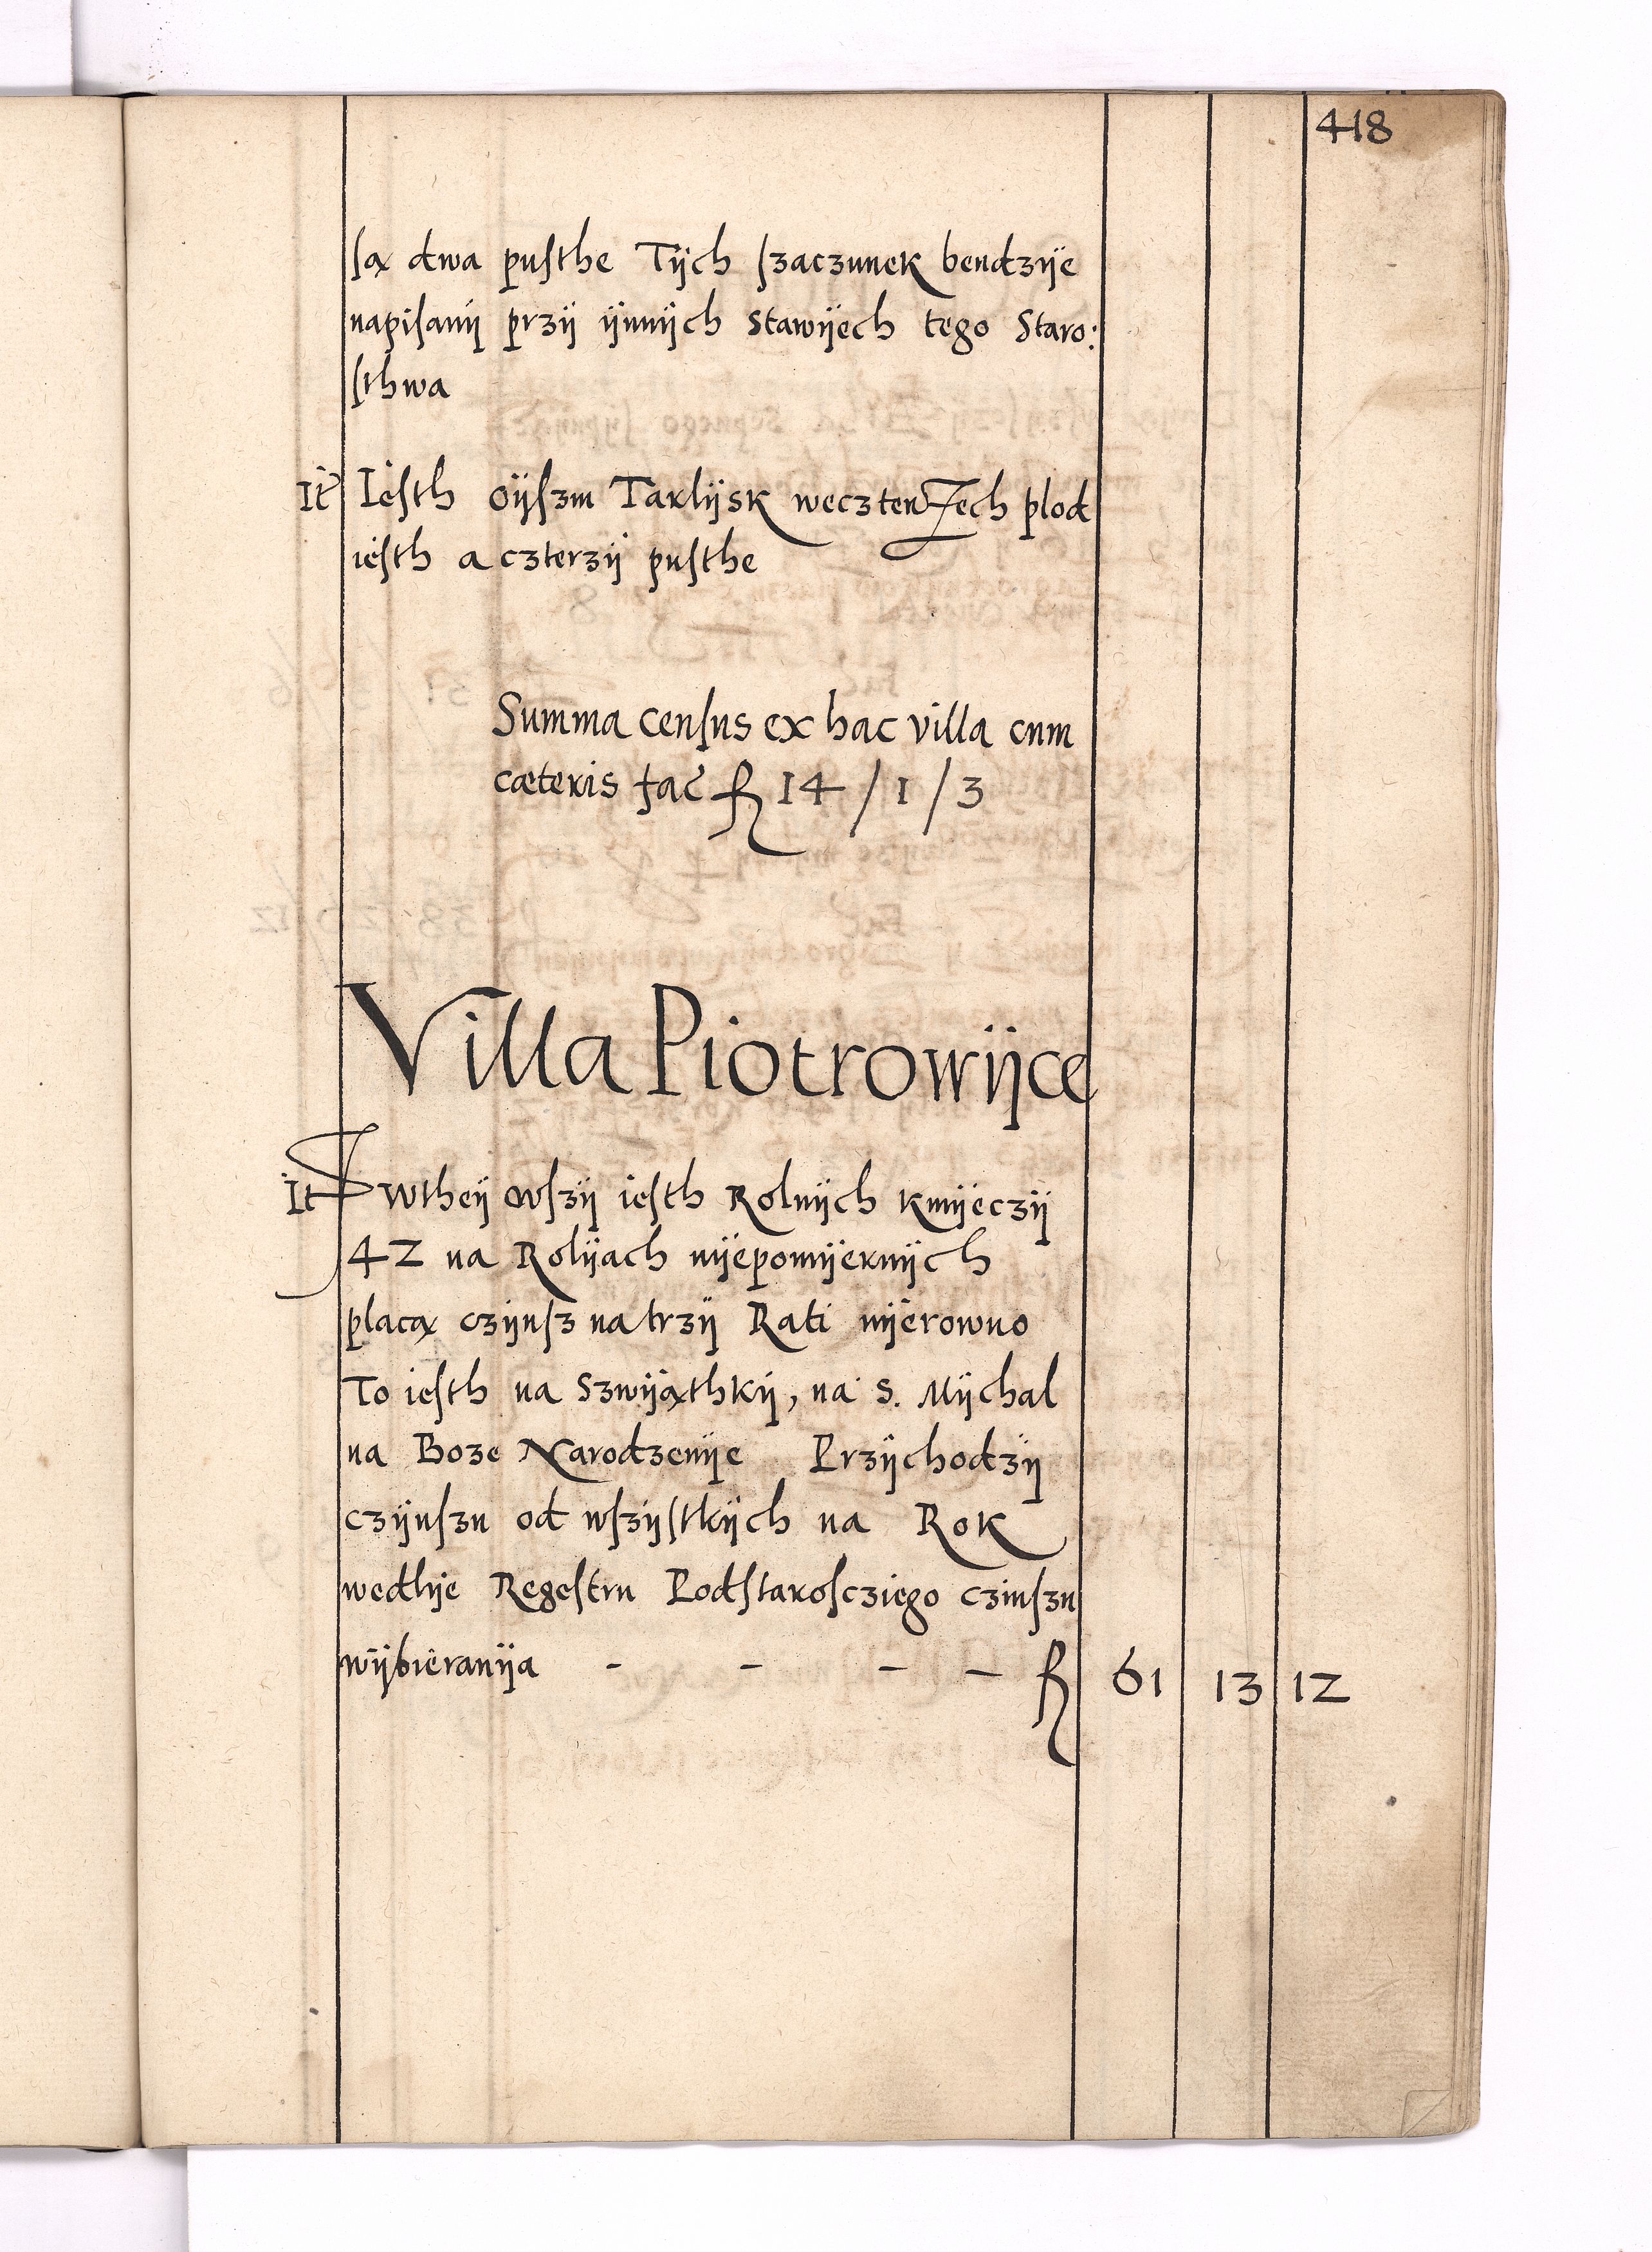 418
są dwa pusthe Tÿch szaczunek bendzÿe
napisanÿ przÿ ÿnnÿch stawÿech tego Staro:
sthwa
It Iesth oÿszm Tarlÿsk weczterzech plod
iesth a czterzÿ pusthe
Summa census ex hac villa cum
cæteris fac fl 14 / 1 / 3
Villa Piotrowÿce
It wtheÿ wszÿ iesth Rolnÿch kmÿeczÿ
42 na Rolÿach nÿepomÿernÿch
placą czÿnsz na trzÿ Rati nÿerowno
To iesth na Szwÿąthkÿ, na S. Mÿchal
na Boze Narodzenÿe Przÿchodzÿ
czÿnszu od wszÿstkÿch na Rok
wedlÿe Regestru Podstarosczie​go czinszu
wÿbieranÿa - - - - fl 61 13 12